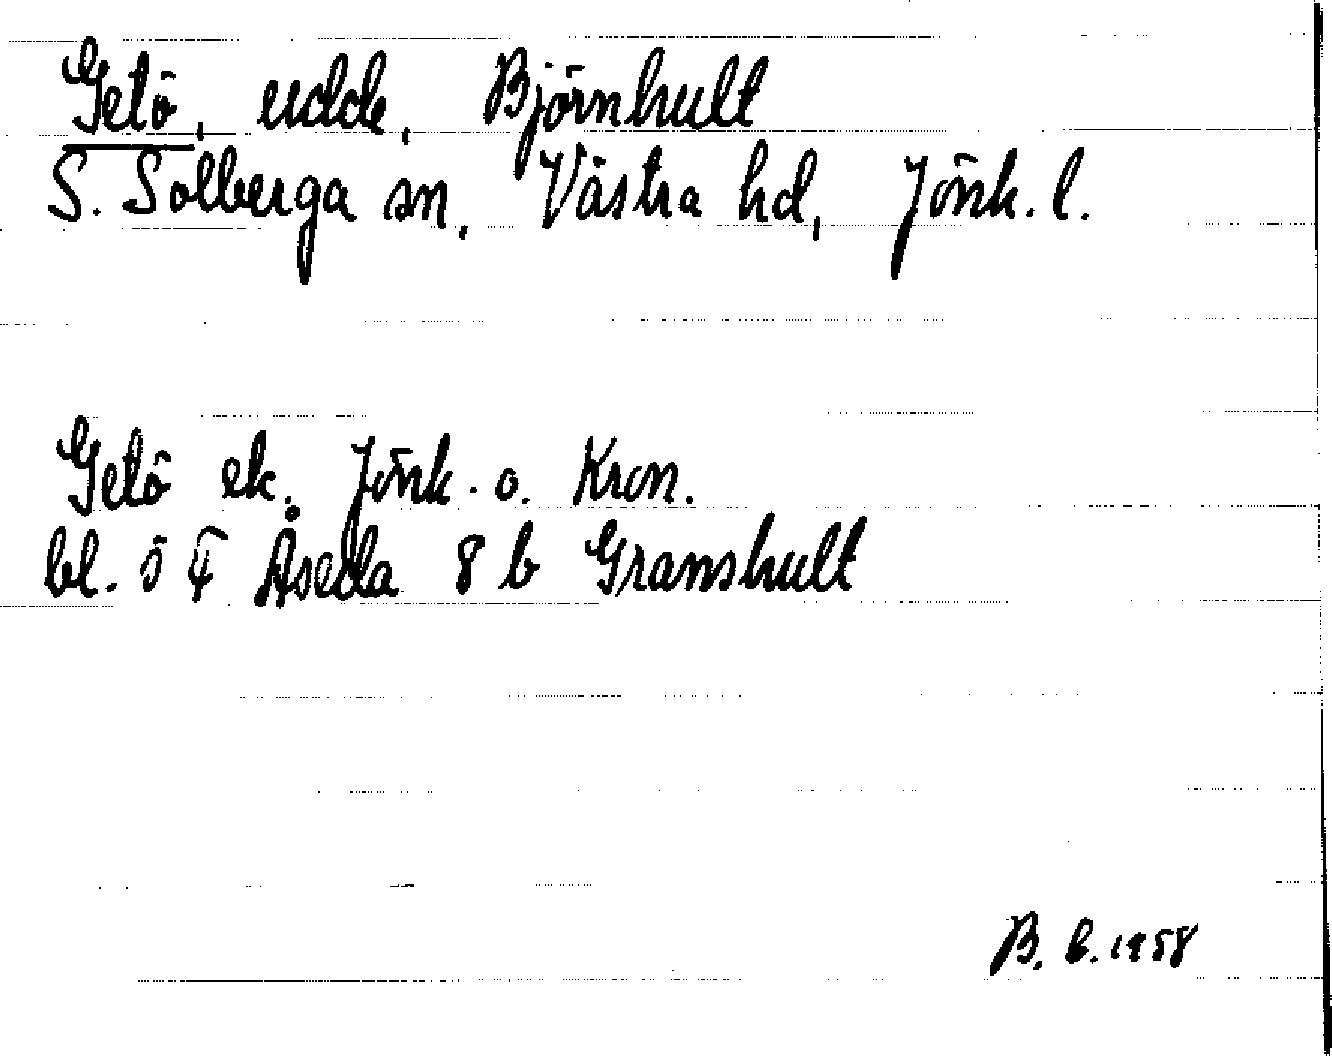 Getö, udde, Björnhult
S. Solberga sn, Västra hd, Jönk. l.
Getö ek. Jönk. o. Kron.
bl. ö 4 Åseda 8 b Granshult
B. L. 1958